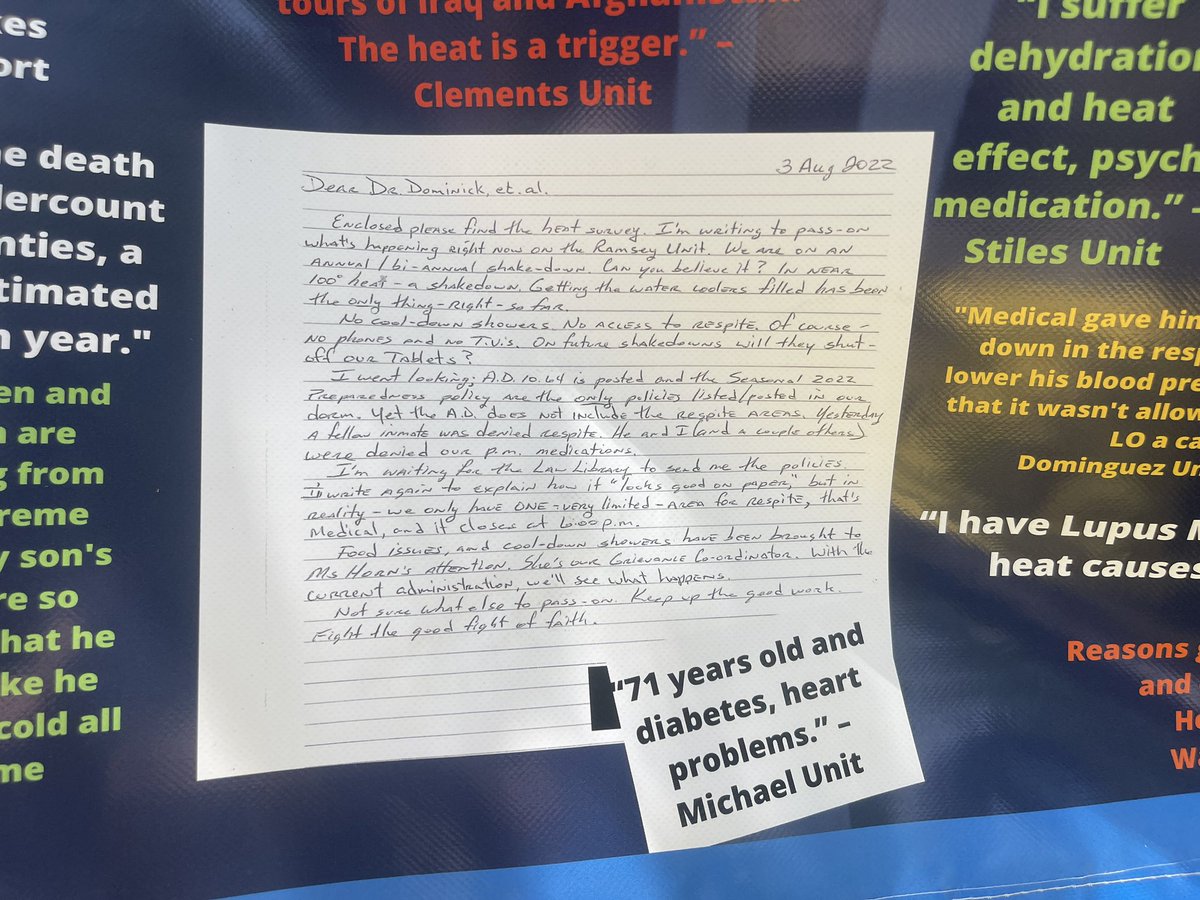 kes
ort
e death
lercount
nties, a
timated
n year."
en and
n are
g from
reme
y son's
re so
hat he
ke he
cold all
me
tours of Iraq and Afghanistan.
The heat is a trigger.” –
Clements Unit
3 Aug 2022
Dear Dr. Dominick, et. al.
Enclosed please find the heat survey. I'm writing to pass-on
what's happening right now on the Ramsey Unit. We are on an
annual/bi-annual shake-down. Can you believe it? In near
100° heat – a shakedown. Getting the water coolers filled has been
the only thing-right-so far.
No cool-down showers. No access to respite. Of course –
no phones and no T.V.'s. On future shakedowns will they shut-
off our Tablets?
I went looking; A.D. 10.64 is posted and the Seasonal 2022
Preparedness policy are the only policies listed/posted in our
dorm. Yet the A.D. does not include the respite areas. Yesterday
a fellow inmate was denied respite. He and I (and a couple others)
were denied our p.m. medications.
I'm waiting for the Law Library to send me the policies.
write again to explain how it "looks good on paper," but in
reality – we only have ONE – very limited – area for respite, that's
Medical, and it closes at 6:00 p.m.
Food issues, and cool-down showers have been brought to
Ms Horn's attention. She's our Grievance Co-ordinator. With the
current administration, we'll see what happens.
Not sure what else to pass-on. Keep up the good work.
Fight the good fight of faith.
“71 years old and
diabetes, heart
problems.” –
Michael Unit
"I suffer
dehydration
and heat
effect, psych
medication.” –
Stiles Unit
"Medical gave him
down in the resp
lower his blood pre
that it wasn't allow
LO a ca
Dominguez Un
“I have Lupus
heat causes
Reasons g
and
He
Wa